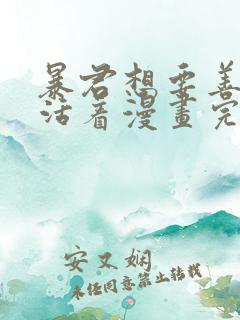 暴君想要善
活着漫畫完
安又娴
未经同意禁止转载